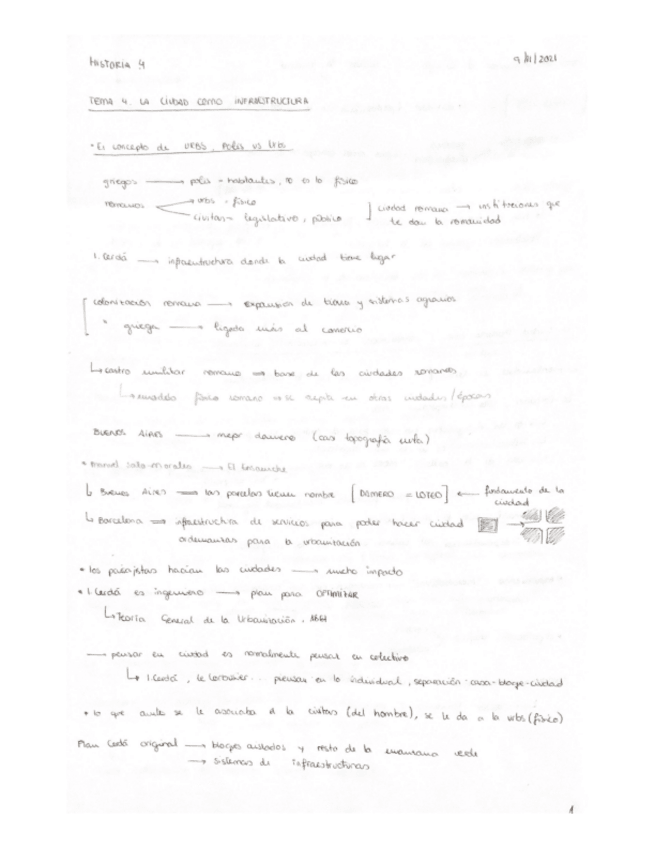 HISTORIA 4
9/11/2021
TEMA 4. LA CIUDAD COMO INFRAESTRUCTURA
• El concepto de URBS. Polis vs Urbs
griegos → polis - habitantes, no es lo físico
romanos → urbs - físico
civitas - legislativo, público
] ciudad romana → instituciones que
te dan la romanidad
I. Cerdá → infraestructura donde la ciudad tiene lugar
[ colonización romana → expansión de tierra y sistemas agrarios
" griega → ligada más al comercio
↳ castro militar romano ⇒ base de las ciudades romanas
↳ modelo físico romano → se repite en otras ciudades/épocas
BUENOS AIRES → mejor damero (casi topografía)
• Manuel Solà-Morales → El Ensanche
↳ Buenos Aires ⇒ las parcelas tienen nombre [DAMERO = LOTEO] ← fundamento de la
ciudad
↳ Barcelona ⇒ infraestructura de servicios para poder hacer ciudad →
ordenanzas para la urbanización
• los paisajistas hacían las ciudades → mucho impacto
• I. Cerdá es ingeniero → plan para OPTIMIZAR
↳ Teoría General de la Urbanización.
→ pensar en ciudad es normalmente pensar en colectivo
↳ I. Cerdá, Le Corbusier... piensan en lo individual, separación casa-bloque-ciudad
• lo que antes se le asociaba a la civitas (del hombre), se le da a la urbs (físico)
Plan Cerdá original → bloques aislados y resto de la manzana verde
→ sistemas de infraestructuras
1